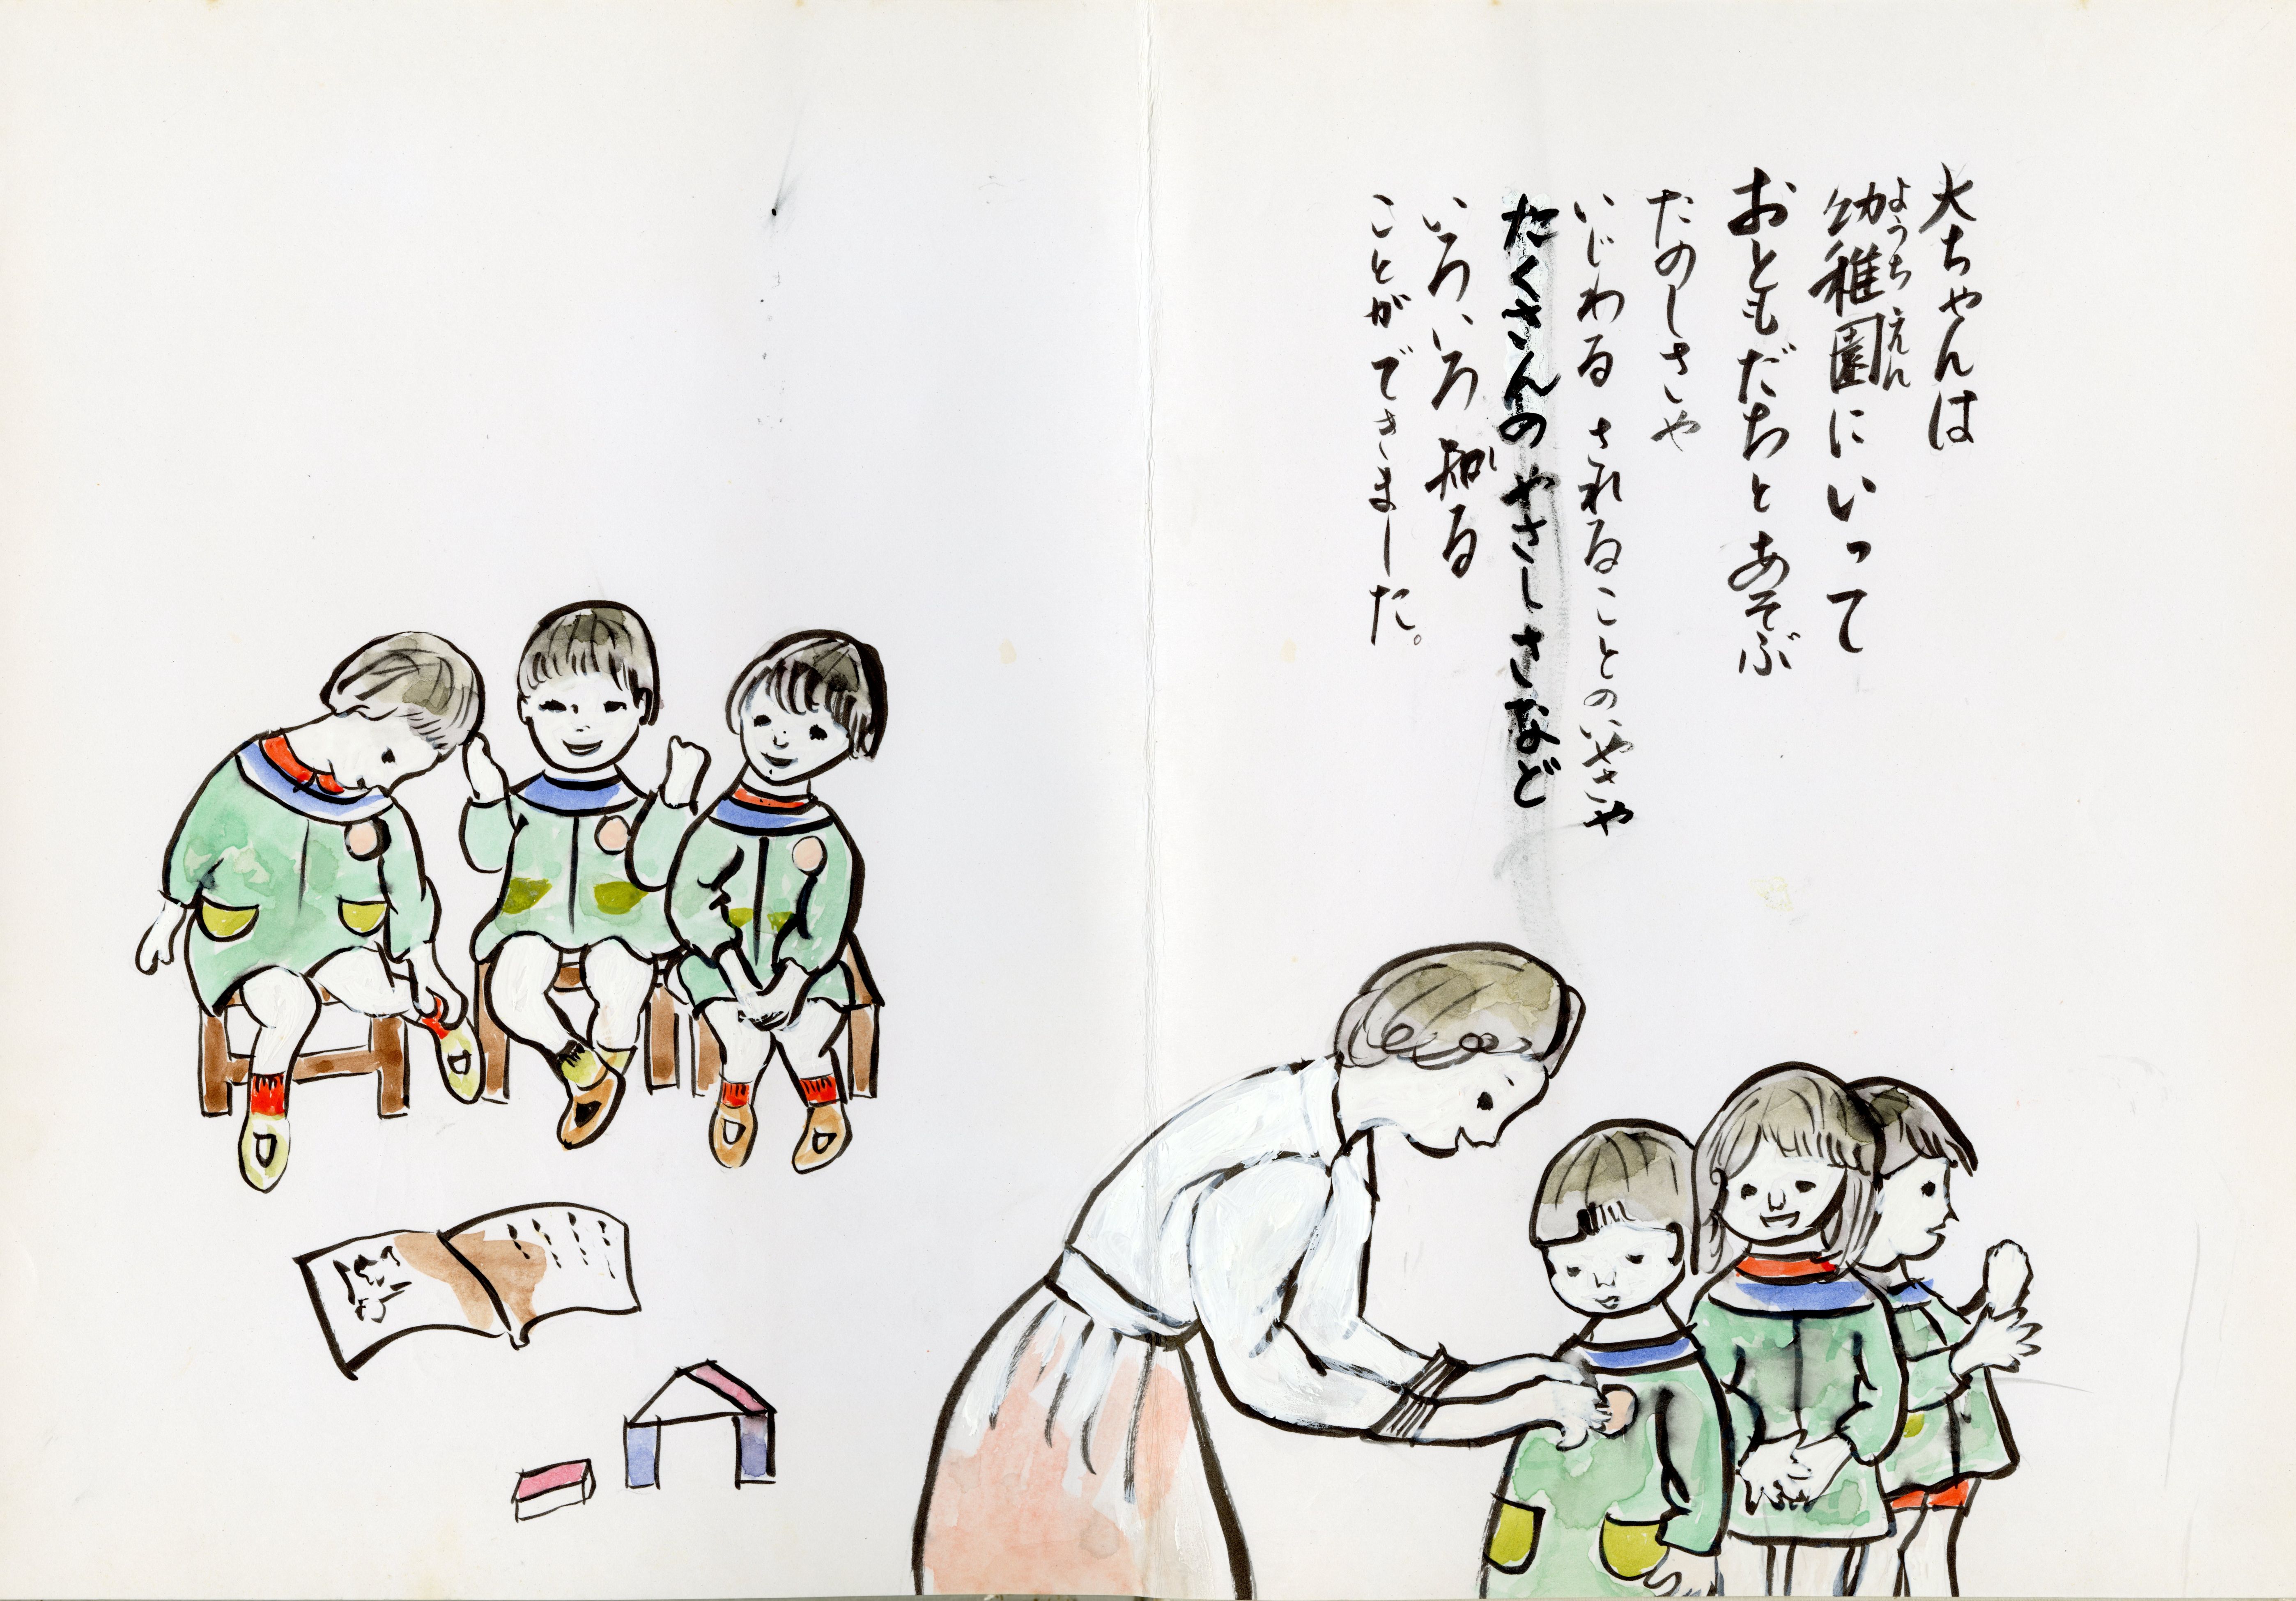 大ちゃんは
幼稚園にいって
ようちえん
おともだちとあそぶ
たのしさや
いじわるされることのいやさや
たくさんのやさしさなど
いろいろ知る
ことができました。